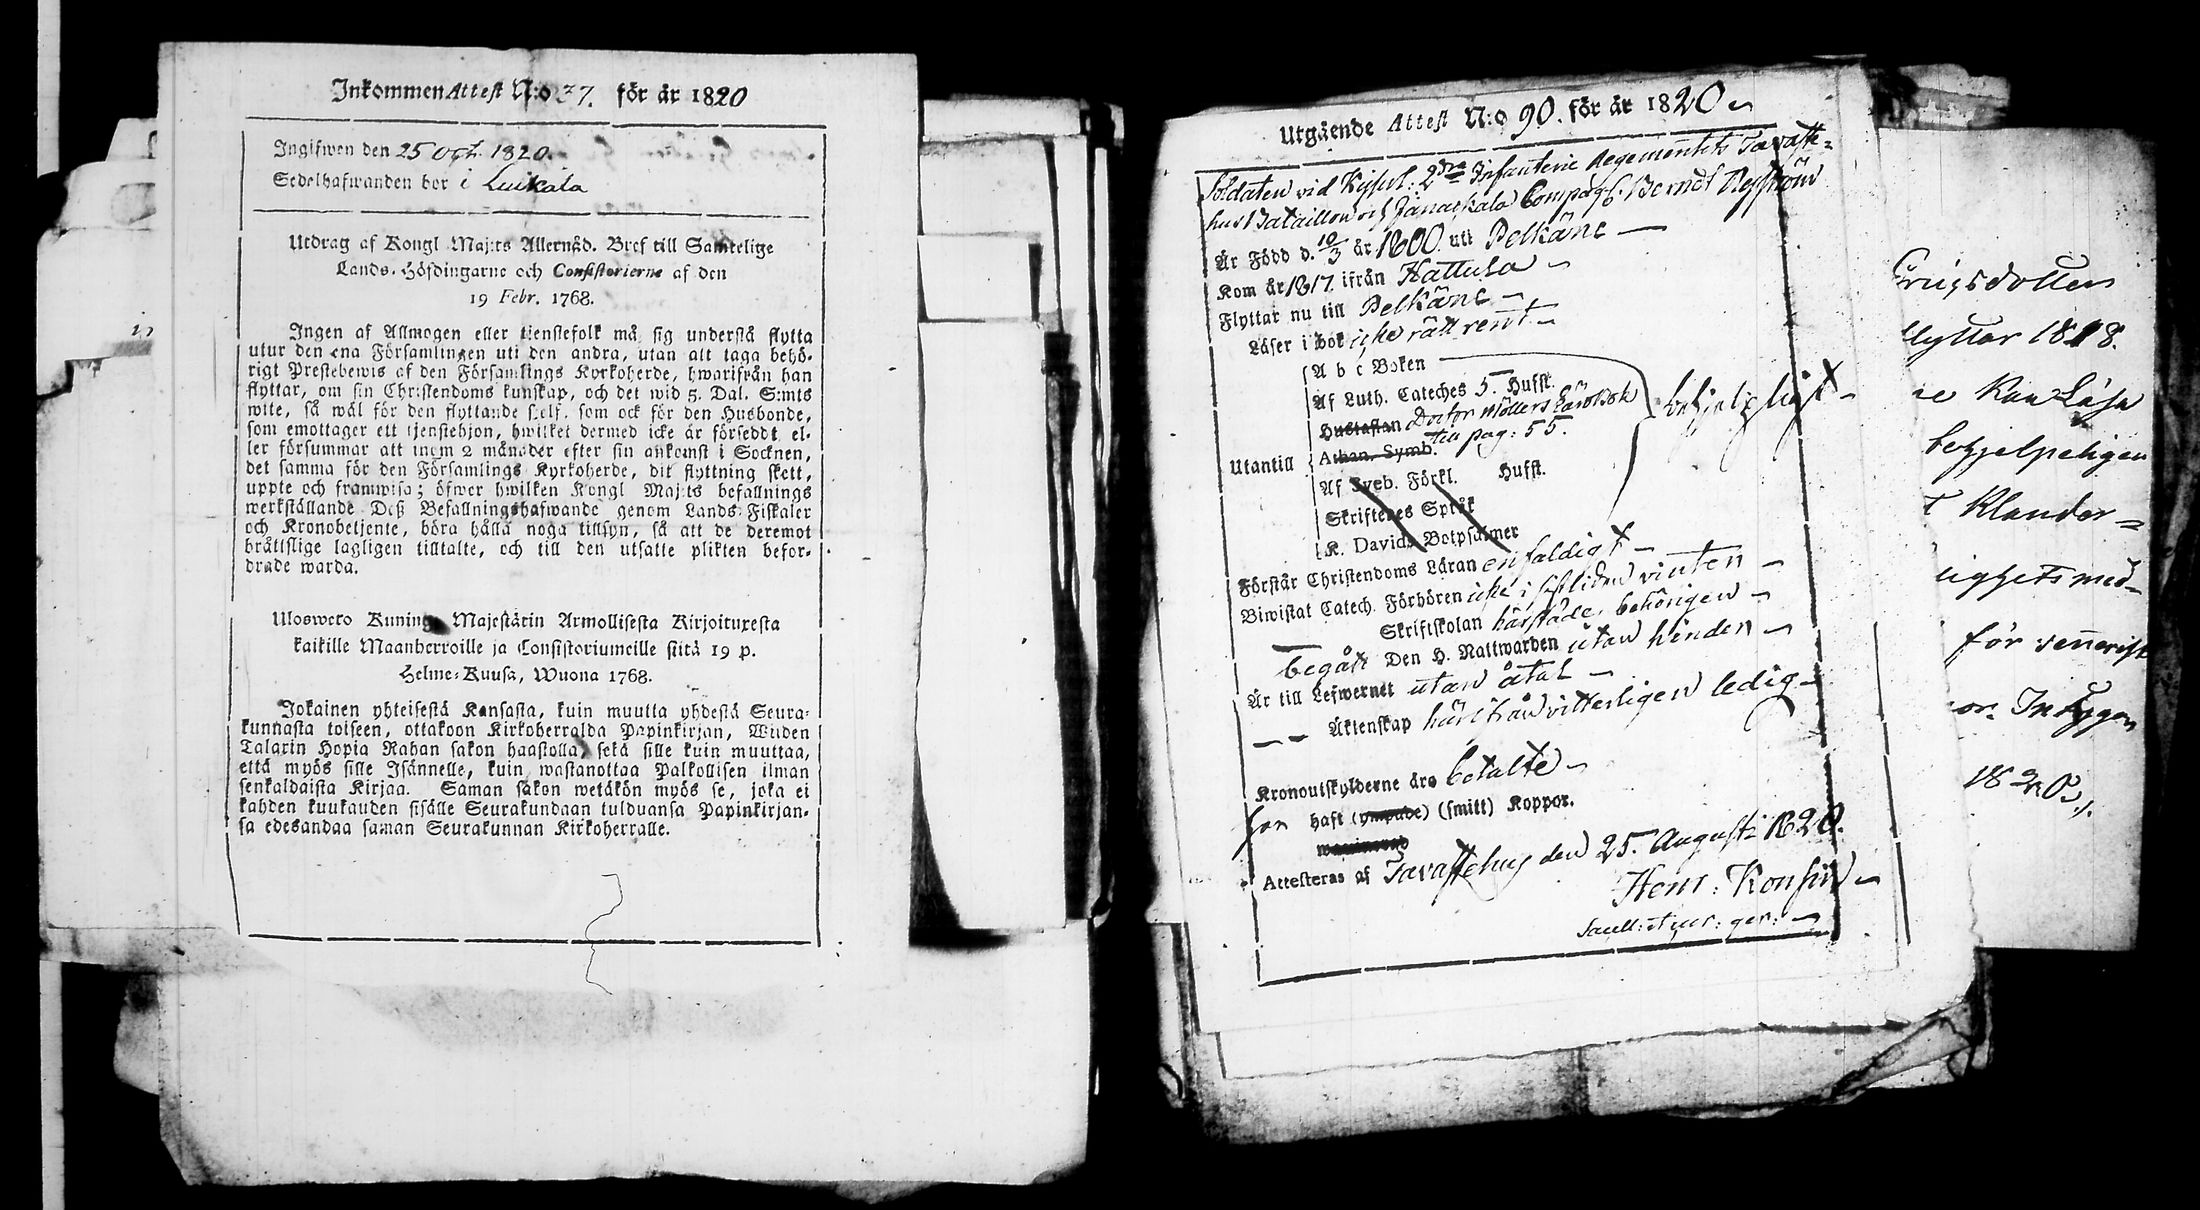 Inkommen Attest N:o 37. för år 1820
Ingifwen den 25 Oct. 1820.
Sedelhafwanden bor i Luikala
Utdrag af Kongl Maj:ts Allernåd. Bref till Samtelige
Lands-Höfdingarne och Consistorierne af den
19 Febr. 1768.
Ingen af Allmogen eller tjenstefolk må sig understå flytta
utur den ena Församlingen uti den andra, utan att taga behö-
rigt Prestebewis af den Församlings Kyrkoherde, hwarifrån han
flyttar, om sin Christendoms kunskap, och det wid 5. Dal. S:mts
wite, så wäl för den flyttande sielf, som ock för den Husbonde,
som emottager ett tjenstehjon, hwilket dermed icke är förseddt, el-
ler försummar att inom 2 månader efter sin ankomst i Socknen,
det samma för den Församlings Kyrkoherde, dit flyttning skett,
uppte och framwisa; öfwer hwilken Kongl Maj:ts befallnings
werkställande Deß Befallningshafwande genom Lands-Fiskaler
och Kronobetjente, böra hålla noga tillsyn, så att de deremot
bråttslige lagligen tilltalte, och till den utsatte plikten befor-
drade warda.
Uloswero Kuning. Majestätin Armollisesta Kirjoituxesta
kaikille Maanherroille ja Consistoriumeille siitä 19 p.
Helme-Kuusa, Wuona 1768.
Jokainen yhteisestä Kansasta, kuin muutta yhdestä Seura-
kunnasta toiseen, ottakoon Kirkoherralda Papinkirjan, Wiiden
Talarin Hopia Rahan sakon haastolla, sekä sille kuin muuttaa,
että myös sille Isännelle, kuin wastanottaa Palkollisen ilman
senkaldaista Kirjaa. Saman sakon wetäkön myös se, joka ei
kahden kuukauden sisälle Seurakundaan tulduansa Papinkirjan-
sa edesandaa saman Seurakunnan Kirkoherralle.
Utgående Attest N:o 90. för år 1820
Soldaten vid Kejserl: 2dra Infanterie Regementets Tavaste-
hus Bataillon och Janackala Compag: Berndt
Är Född d. 10/3 år 1800. uti Pelkäne
Kom år 1817. ifrån Hattula
Flyttar nu till Pelkäne
Läser i bok icke rätt rent
Utantill
A b c Boken
Af Luth. Cateches 5 Hufst.
Hustaflan Doctor Möllers Lärobok
Athan. Symb. till pag: 55.
Af Sveb. Förkl. Hufst.
Skriftenes Språk
K. Davids Botpsalmer
behjelpligt
Förstår Christendoms Läran enfaldigt
Biwistat Catech. Förhören icke i sistliden vinter
Skriftskolan härstädes behörigen
begått Den H. Nattwarden utan hinder
Är till Lefwernet utan åtal
Äktenskap härifrån vitterligen ledig
Kronoutskylderne äro betalte
har haft (ympade) (smitt) Koppor.
Attesteras af Tavastehus den 25. Augusti 1820.
Henr: Konsin
flyttar 1818.
Kan Läsa
behjelpeligen
Klander=
ighets med-
för
1820.